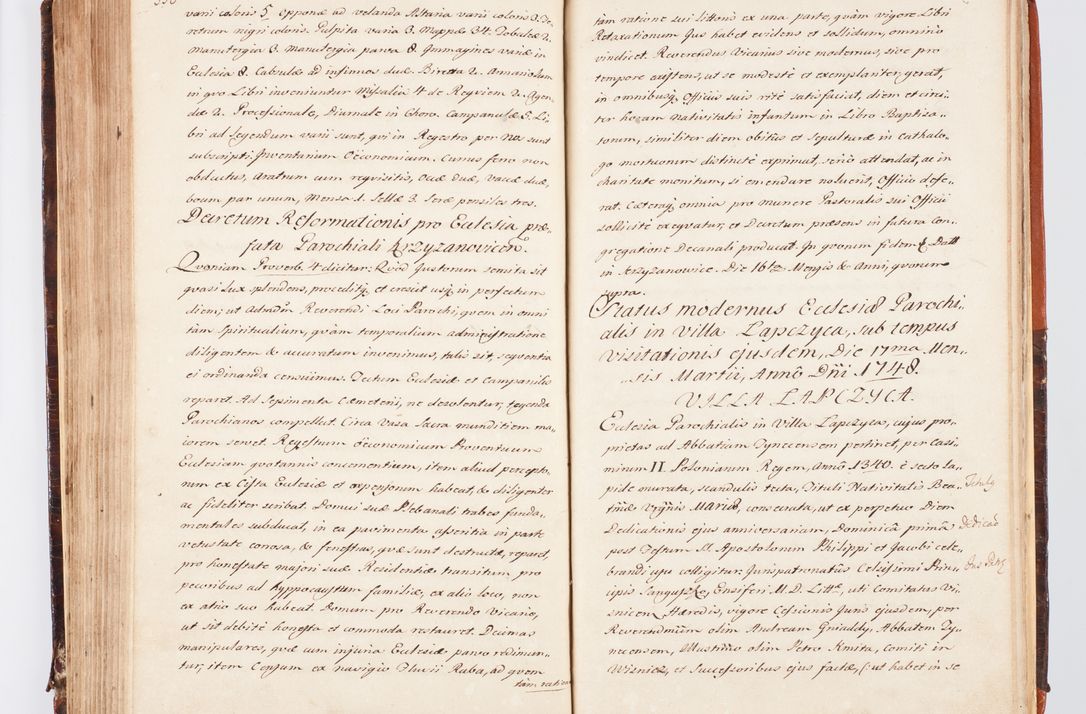 varii coloris 5. Opponæ ad velanda Altaria varii coloris 3. De„
retum nigri coloris. Pulpita varia 3. Mappæ 34. Tobaleæ 2.
Manutergia 3. Manutergia parva 8. Immagines variæ in
Ecclesia 8. Cabsulæ ad infirmos duæ. Biretta 2. Armariolum
in qvo Libri inveniuntur Missalia 4. de Reqviem 2. Agen„
dæ 2. Processionale, Diurnale in Choro. Campanulæ 5. Li„
bri ad legendum varii sunt, qvi in Regestro per me sunt
subscripti. Inventarium Oeconomicum. Currus ferro non
obductus, aratrum cum reqvisitis, Occæ duæ, vaccæ duæ,
boum par unum, Mensa 1. Sellæ 3. Seræ pensiles tres.
Decretum Reformationis pro Ecclesia præ„
fata Parochiali Krzyzanovicen.
Qvoniam Proverb. 4 dicitur: Qvòd Justorum semita sit
qvasi Lux splendens, proceditq, et crescit usq, in perfectum
diem; ut Admdm Reverendi Loci Parochi, qvem in omni
tàm Spiritualium, qvàm temporalium administratione
diligentem & accuratum invenimus, talis sit, seqventia
ei ordinanda censuimus. Tectum Ecclesiæ et Campanilis
reparet. Ad Sepimenta Cæmeterii, ne desolentur, tegenda
Parochianos compellat. Circa Vasa Sacra munditiem ma„
iorem servet. Regestrum Oeconomicum Proventuum
Ecclesiam qvotannis concernentium, item aliud percepto„
rum ex Cista Ecclesiæ et expensorum habeat, & diligenter
ac fideliter scribat. Domui suæ Plebanali trabes funda„
mentales subducat, in ea pavimenta asseritia in parte
vetustate corrosa, & fenestras, qvæ sunt destructæ, reparet,
pro honestate majori suæ Residentiæ transitum pro
pecoribus ad hyppocaustum familiæ, ex alio loco, non
ex atrio suo habeat. Domum pro Reverendo Vicario,
ut sit debitè honesta et commoda restauret. Decimas
manipulares, qvæ cum injuria Ecclesiæ parvo redimun„
tur, item Censum ex navigio Fluvii Raba, ad qvem
tàm ratione
tàm ratione sui littoris ex una parte, qvàm vigore Libri
Retaxationum Jus habet evidens et sollidum, omnino
vindicet. Reverendus Vicarius sive modernus, sive pro
tempore existens, ut se modestè et exemplariter gerat,
in omnibusq, Officiis suis ritè satisfaciat, diem et circi„
ter horam Nativitatis infantum in Libro Baptiza„
torum, similiter diem obitus et sepulturæ in Cathalo„
go mortuorum distinctè exprimat, seriò attendat, ac in
charitate monitum, si emendare noluerit, Officio defe„
rat. Cæteraq, omnia pro munere Pastoralis sui Officii
sollicitè exeqvatur, et Decretum præsens in futura Con„
gregatione Decanali producat. In qvorum fidem & Datt
in Krzyżanowice. Die 16ta Mensis & Anni, qvorum
supra.
Status modernus Ecclesiæ Parochi„
alis in Villa Lapczyca, sub tempus
visitationis ejusdem, Die 17ma Men„
sis Martii, Annô Dñi 1748.
VILLA LAPCZYCA.
Ecclesia Parochialis in Villa Lapczyca, cujus pro„
prietas ad Abbatiam Tynecensem pertinet, per Casi„
mirum II. Polonianum Regem, Annô 1340. è secto la„
pide murata, scandulis tecta, Tituli Nativitatis Bea„
tissimæ Virginis MARIÆ, consecrata, ut ex perpetuo Diem
Dedicationis ejus anniversariam, Dominicâ primâ
post Festum SS. Apostolorum Philippi et Jacobi cele„
brandi usu colligitur. Jurispatronatûs Celsissimi Prin„
cipis Sanguszko, Ensiferi M. D. Litt., uti Comitatus Vi„
snicen Hæredis, vigore Cessionis Juris ejusdem, per
Reverendissimum olim Andream Gniaddy, Abbatem Ty„
necensem, Illustrisso olim Petro Kmita, Comiti in
Wisnicz, et Successoribus ejus factæ, (: ut habet in se
Tituly
Dedicao
Jus Patr.